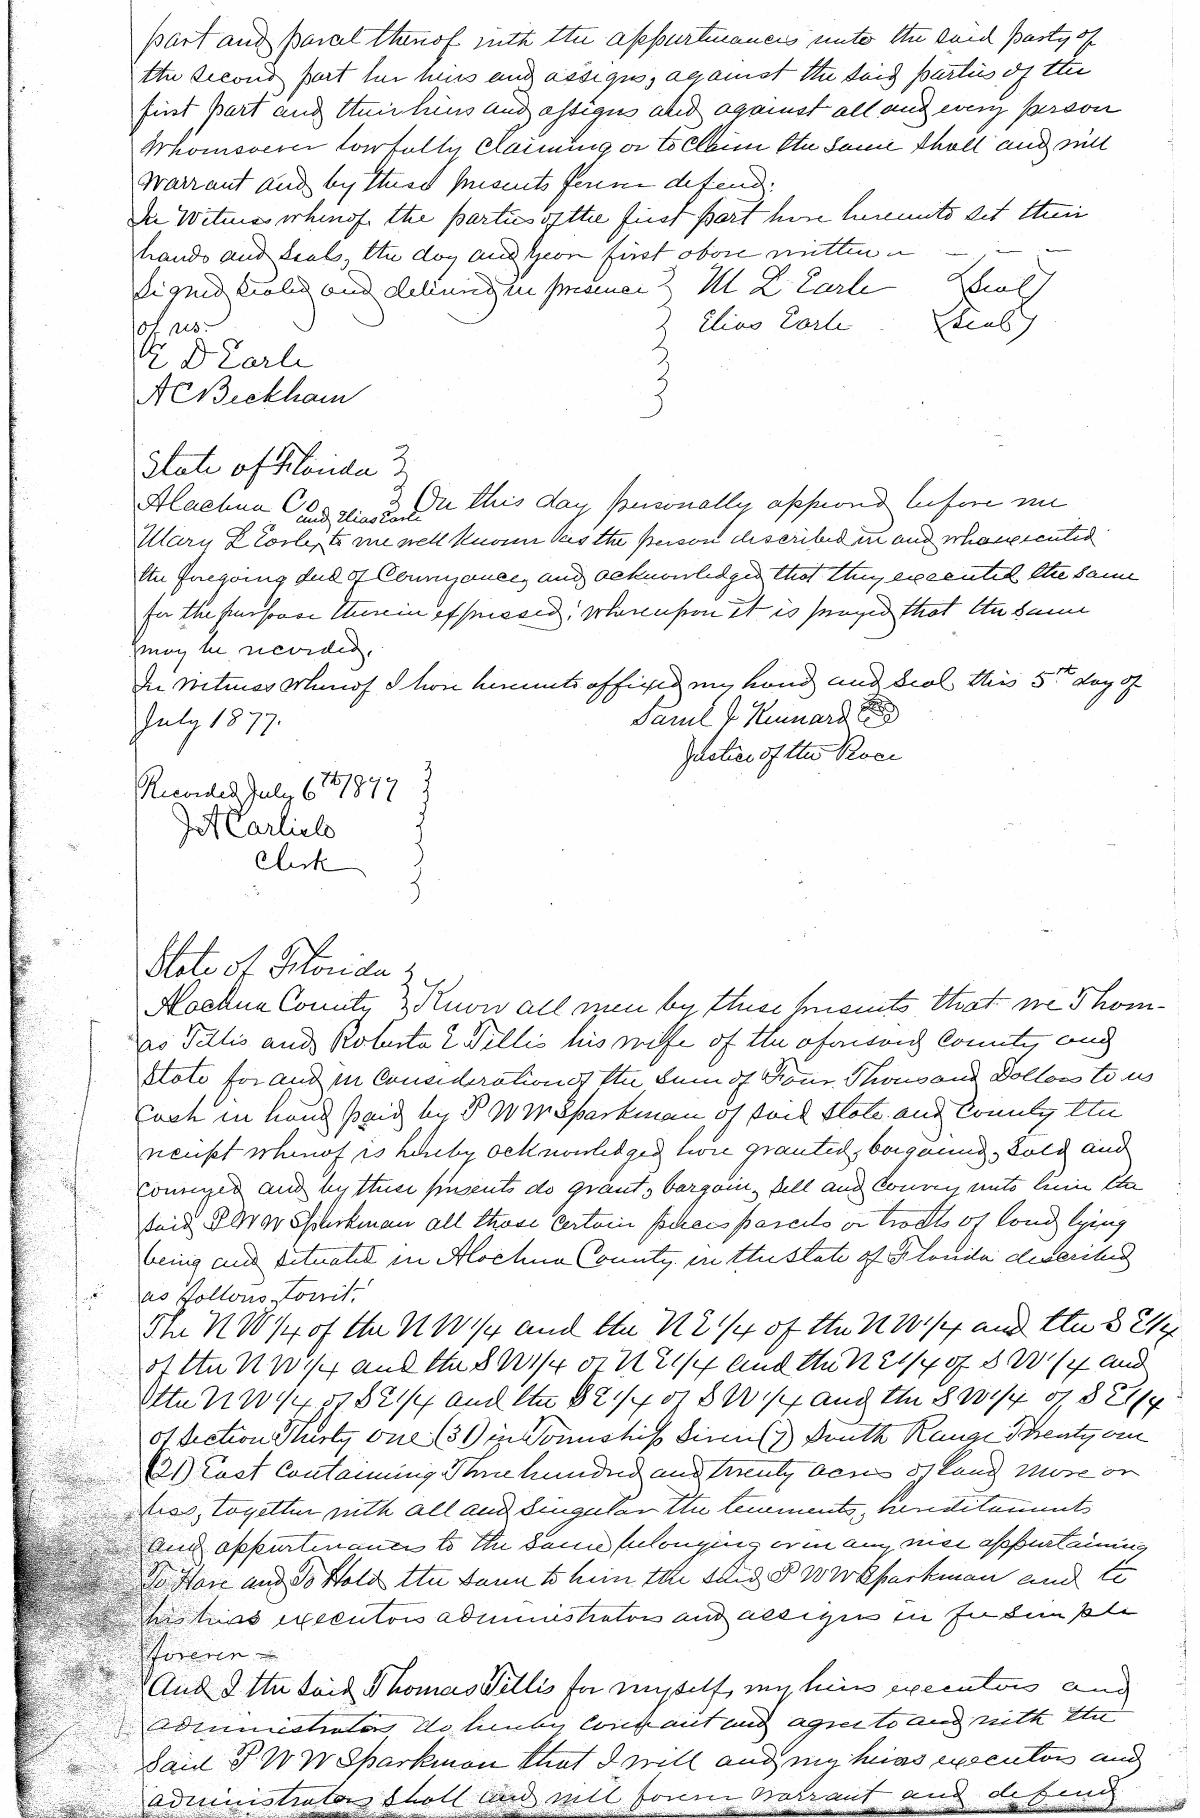 part and parcel thereof with the appurtenances unto the said party of
the second part her heirs and assigns, against the said parties of the
first part and their heirs and assigns and against all and every person
Whomsoever lawfully claiming or to claim the same shall and will
Warrant and by these presents forever defend.
In Witness whereof the parties of the first part have hereunto set their
hands and seals, the day and year first above written
Signed sealed and delivered in presence } M L Earle {Seal}
of us. } Elias Earle {Seal}
E D Earle
A C Beckham
State of Florida }
Alachua Co } On this day personally appeared before me
and Elias Earle
Mary L Earle, to me well known as the person described in and who executed
the foregoing deed of Conveyance, and acknowledged that they executed the same
for the purpose therein expressed; whereupon it is prayed that the same
may be recorded.
In witness whereof I have hereunto affixed my hand and seal this 5th day of
July 1877. Saml J Kennard
Justice of the Peace
Recorded July 6th 1877
J A Carlisle
Clerk
State of Florida }
Alachua County } Know all men by these presents that we Thom-
as Tillis and Roberta E Tillis his wife of the aforesaid County and
State for and in consideration of the sum of Four Thousand Dollars to us
Cash in hand paid by P W W Sparkman of said State and County the
receipt whereof is hereby acknowledged have granted, bargained, sold and
conveyed and by these presents do grant, bargain, sell and convey unto him the
said P W W Sparkman all those certain pieces parcels or tracts of land lying
being and situated in Alachua County in the State of Florida described
as follows, towit:
The N W 1/4 of the N W 1/4 and the N E 1/4 of the N W 1/4 and the S E 1/4
of the N W 1/4 and the S W 1/4 of N E 1/4 and the N E 1/4 of S W 1/4 and
the N W 1/4 of S E 1/4 and the S E 1/4 of S W 1/4 and the S W 1/4 of S E 1/4
of Section Thirty one (31) in Township Seven (7) South Range Twenty one
(21) East Containing Three hundred and twenty acres of land more or
less, together with all and singular the tenements, hereditaments
and appurtenances to the same belonging or in any wise appurtaining
To Have and To Hold the same to him the said P W W Sparkman and to
his heirs executors administrators and assigns in fee simple
forever
And I the said Thomas Tillis for myself, my heirs executors and
administrators do hereby covenant and agree to and with the
said P W W Sparkman that I will and my heirs executors and
administrators shall and will forever warrant and defend